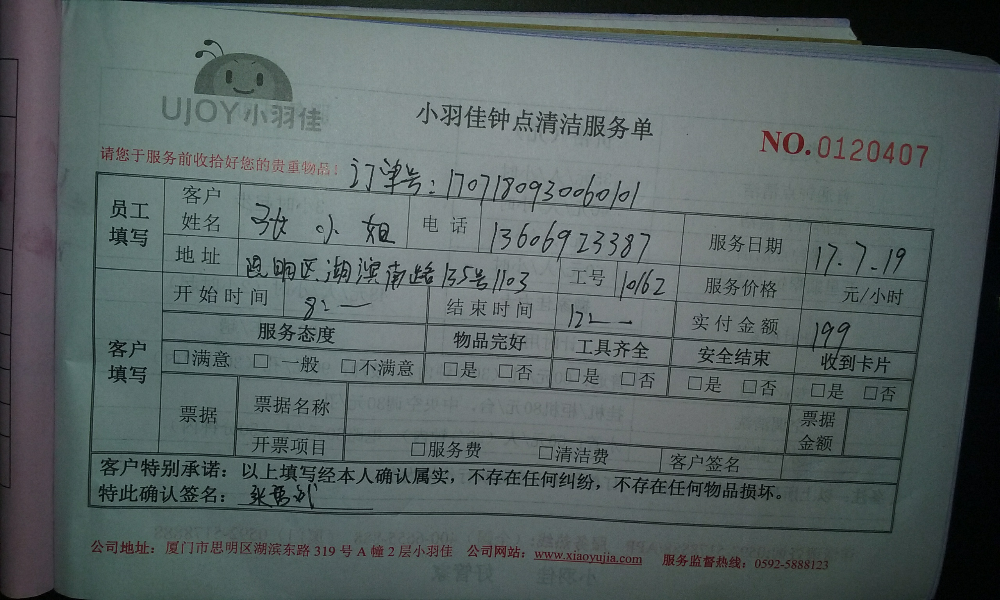 UJOY小羽佳
小羽佳钟点清洁服务单
NO.0120407
请您于服务前收拾好您的贵重物品!
订单号:1707180930060101
员工填写 客户姓名 张小姐 电话 13606923387 服务日期 17.7.19
地址 思明区湖滨南路135号1103 工号 1062 服务价格 元/小时
开始时间 8:— 结束时间 12:— 实付金额 199
客户填写 服务态度 物品完好 工具齐全 安全结束 收到卡片
□满意 □一般 □不满意 □是 □否 □是 □否 □是 □否 □是 □否
票据 票据名称 票据金额
开票项目 □服务费 □清洁费 客户签名
客户特别承诺:以上填写经本人确认属实,不存在任何纠纷,不存在任何物品损坏。
特此确认签名:
公司地址:厦门市思明区湖滨东路319号A幢2层小羽佳 公司网站:www.xiaoyujia.com 服务监督热线:0592-5888123